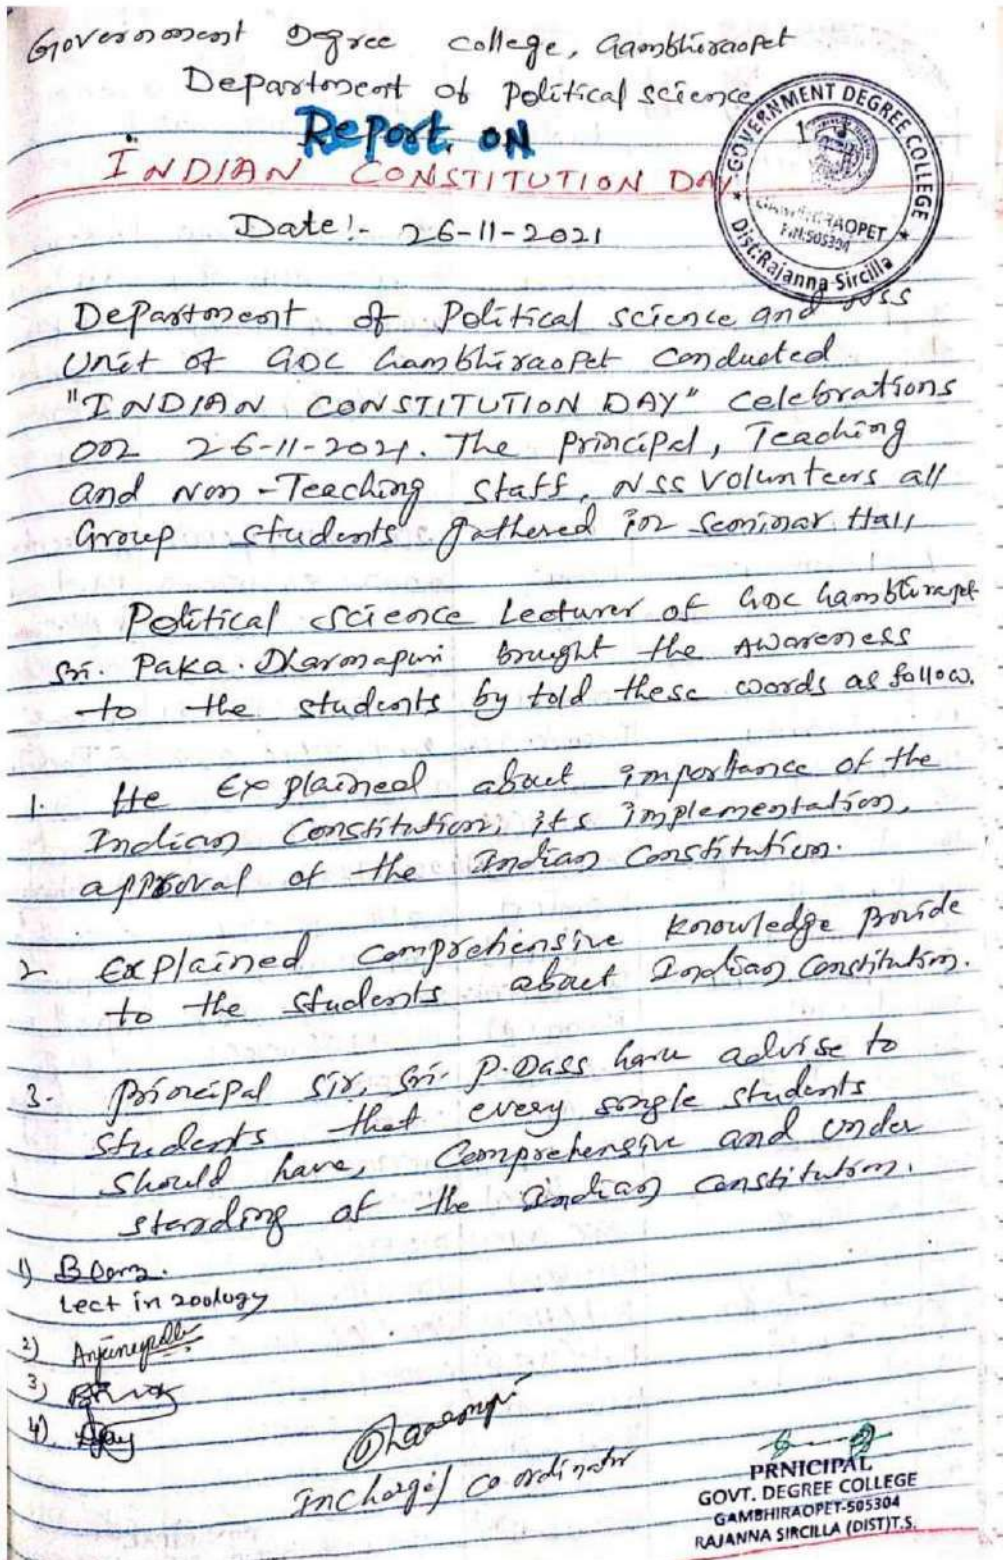 Government Degree college, Gambhiraopet
Department of Political science
Report on
"INDIAN CONSTITUTION DAY
GOVERNMENT DEGREE COLLEGE
GAMBHIRAOPET
Pin:505304
Dist:Rajanna Sircilla
Date:- 26-11-2021
Department of Political science and NSS
Unit of GDC Gambhiraopet Conducted
"INDIAN CONSTITUTION DAY" celebrations
on 26-11-2021. The Principal, Teaching
and Non-Teaching staff, NSS Volunteers all
Group students gathered in Seminar Hall
Political science Lecturer of GDC Gambhiraopet
Sri. Paka. Dharmapuri brught the awareness
to the students by told these words as follow.
1. He Explained about importance of the
Indian Constitution, its implementation,
approval of the Indian Constitution.
2 Explained comprehensive knowledge provide
to the students about Indian Constitution.
3. Principal sir, Sri. P.Dass have advise to
students that every single students
should have, Comprehensive and under
standing of the Indian constitution.
1)
Lect in zoology
2) Anjaneyulu
3)
4)
Incharge/ co ordinator
PRNICIPAL
GOVT. DEGREE COLLEGE
GAMBHIRAOPET-505304
RAJANNA SIRCILLA (DIST)T.S.